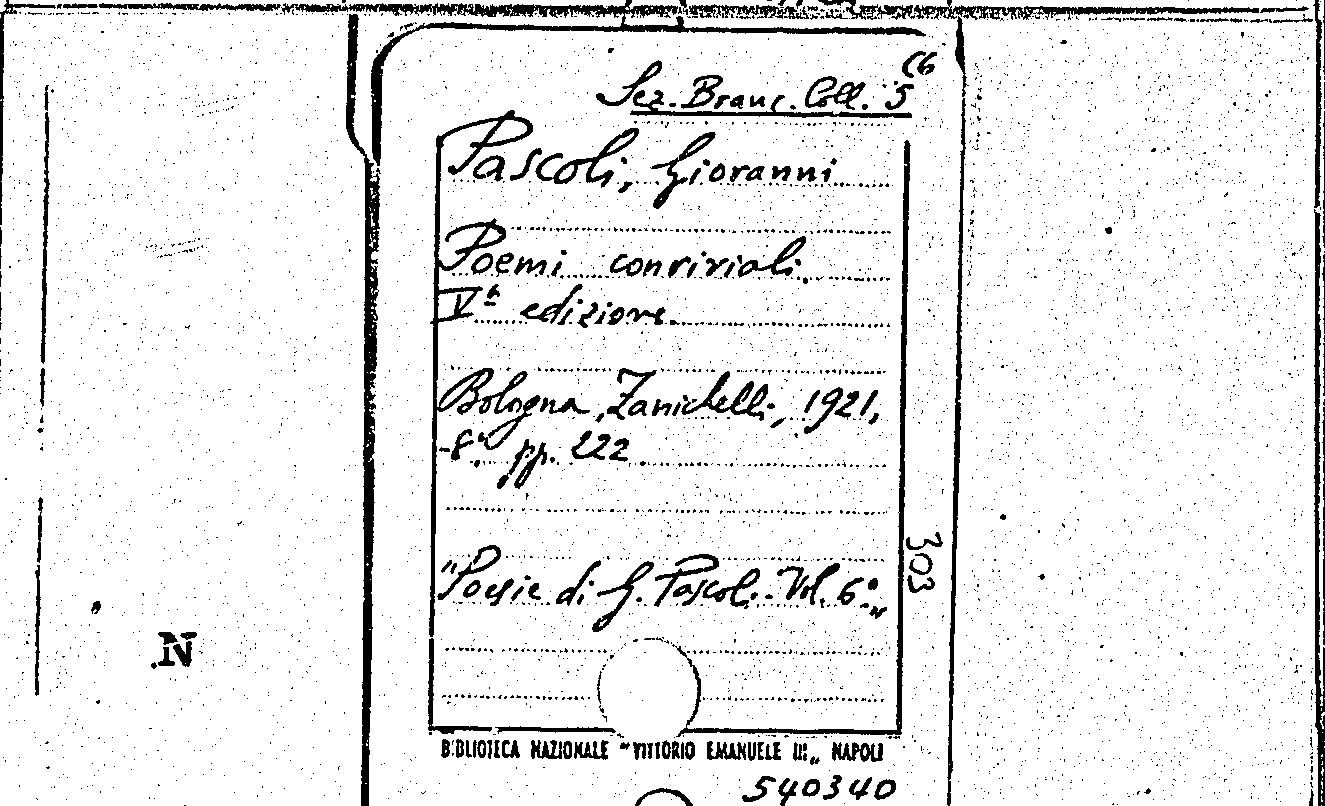 Sez. Branc. Coll. 5 (6
Pascoli, Giovanni
Poemi conviviali.
Vª edizione.
Bologna, Zanichelli, 1921,
-8º. pp. 222.
303
"Poesie di G. Pascoli. Vol. 6º„
N
BIBLIOTECA NAZIONALE "VITTORIO EMANUELE III„ NAPOLI
540340